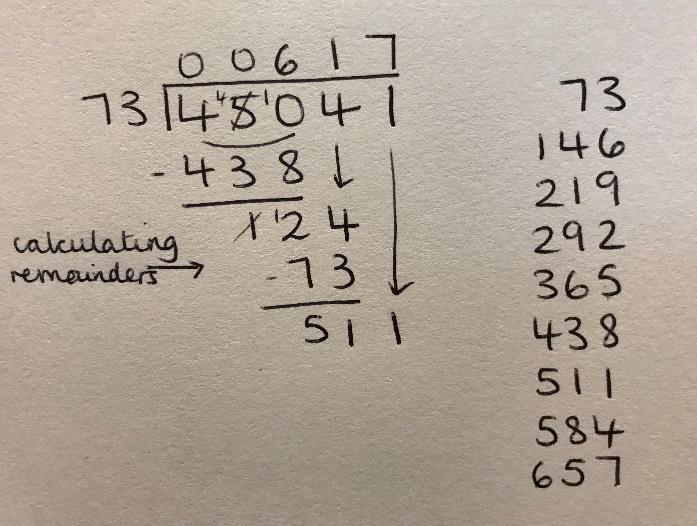 00617
73 45041
-438
124
-73
511
calculating
remainders
73
146
219
292
365
438
511
584
657